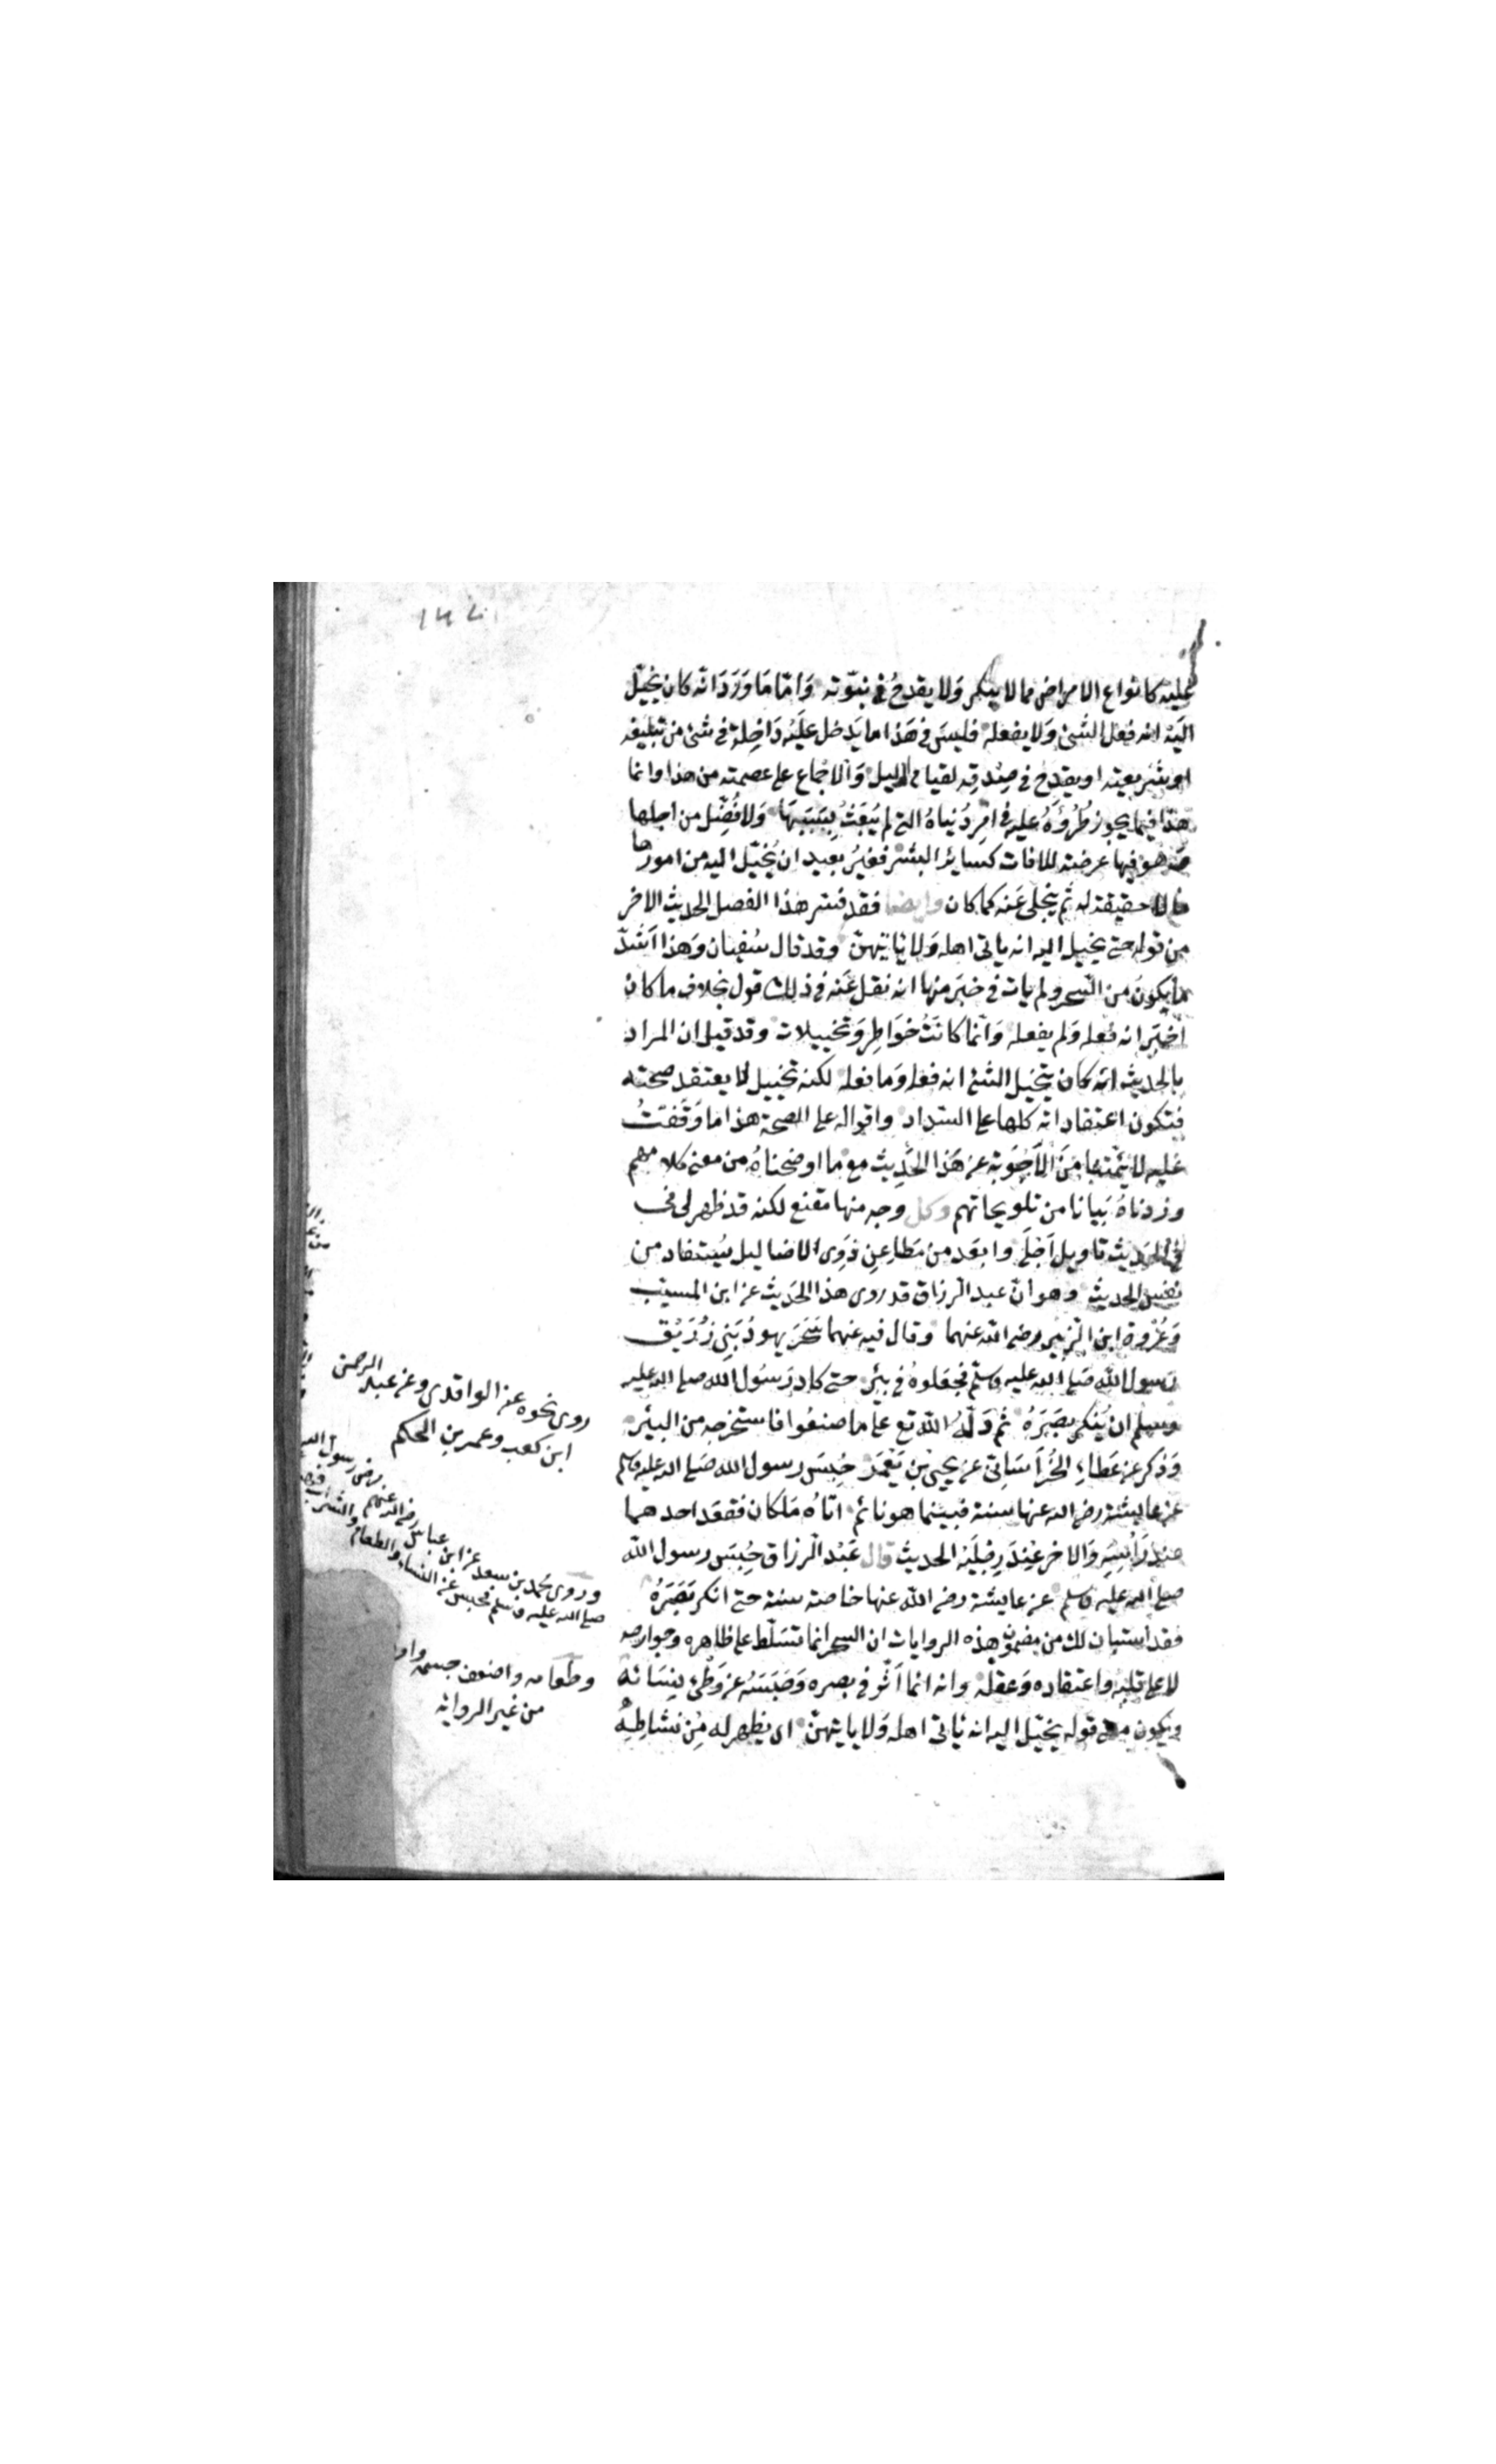 عليه كانواع الامراض مما لا ينكر وَلا يقدحُ في نبوّته وَامّا مَا وَرَدَ انّه كان يخيّل
اليَه انه فعَل الشئ وَلا يفعله فليسَ في هَذا ما يَدخل عَليْه دَاخِلة في شئ من تبليغه
او شريعته او يقدح في صِدقِه لقيام الدليل وَالاجماع على عصمته من هذا وانما
هذا فيما يجوز طُرُوُّهُ عليه في امْرِ دُنياهُ التي لم يُبعَث بِسَبَبِهَا وَلا فُضِّل من اجلها
وَهو فيها عرضة للافات كسايرِ البشر فغيرُ بعيد ان يُخيّل اليه من امورها
ما لا حقيقة له ثم ينجلى عَنه كما كان وايضا فقد فسّر هذا الفصل الحديث الاخر
من قوله حتى يخيل اليه انه ياتى اهله وَلا ياتيهنّ وقد قال سُفيان وَهذا اَشدّ
ما يكون من السحر ولم يات في خبَر منها انه نقل عَنه في ذلك قول بخلاف ما كان
اخبَر انه فعله وَلم يفعله وَانّما كانَتْ خوَاطِر وَتخييلات وقد قيل ان المراد
بالحديث انه كان يتخيل الشئ انه فعله وَما فعله لكنه تخييل لا يعتقد صحته
فتكون اعتقاداته كلها على السّداد واقواله على الصحة هذا ما وَقَفتُ
عليه لائمّتنا مِنَ الاَجْوبة عن هَذا الحَدِيث مع ما اوضحناهُ من معنى كلامهم
وزدناهُ بَيانا من تلويحاتهم وكل وجه منها مقنع لكنه قد ظهر لى في
في الحَديث تاويل اَجْلَى وابعَد من مَطاعِنِ ذَوِى الاضاليل يُستفاد من
نفس الحديث وهو انّ عبد الرزاق قد روى هذا الحَديث عن ابن المسيّب
وَعُرْوة ابن الزبير رضى الله عنهما وقال فيه عنهما سَحَرَ يهودُ بَنِى زُرَيْق
رسول اللّه صَلى الله عليه وسلّم فجعَلوهُ في بئر حتى كاد رَسُول الله صلى الله عليه
وسلم ان يُنكر بصَرَهُ ثم دَلّهُ اللّه تع على ما صنعُوا فاستخرجه من البئر
وَذكر عن عَطاءِ الخُرَاسَانِى عن يحيى بْنِ يَعْمَرَ حُبِسَ رسول الله صَلى الله عليه وسلم
عن عايشة رضى الله عنها سنة فبينما هو نائم اتاهُ مَلكان فقعَد احدهما
عند رَأسِهِ وَالاخر عِندَ رِجْلَيْهِ الحديث قال عَبْد الرزاق حُبِسَ رسول اللّه
صلى الله عليه وسلم عن عايشة رضى اللّه عنها خاصة سنة حتى انكر بَصَرَهُ
فقد استبان لك من مضمون هذه الروايات ان السحر انما تسَلّط على ظاهره وجوارحه
لا على قلبه واعتقاده وَعقله وانه انما اَثّر في بصره وَحَبَسَهُ عن وَطْئ نِسَائه
ويكون معنى قوله يخيّل اليه انه ياتى اهله وَلا ياتيهنّ اى يظهر له مِن نشاطِهِ
روى نحوه عن الواقدى وعن عبد الرحمن
ابن كعب وعمر بن الحكم
وروى محمد بن سعد عن ابن عباس رضى الله عنهم
صلى الله عليه وسلم فحبس عن النساء والطعام والشراب
وطعامه واضعف جسمه
من غير الرواية